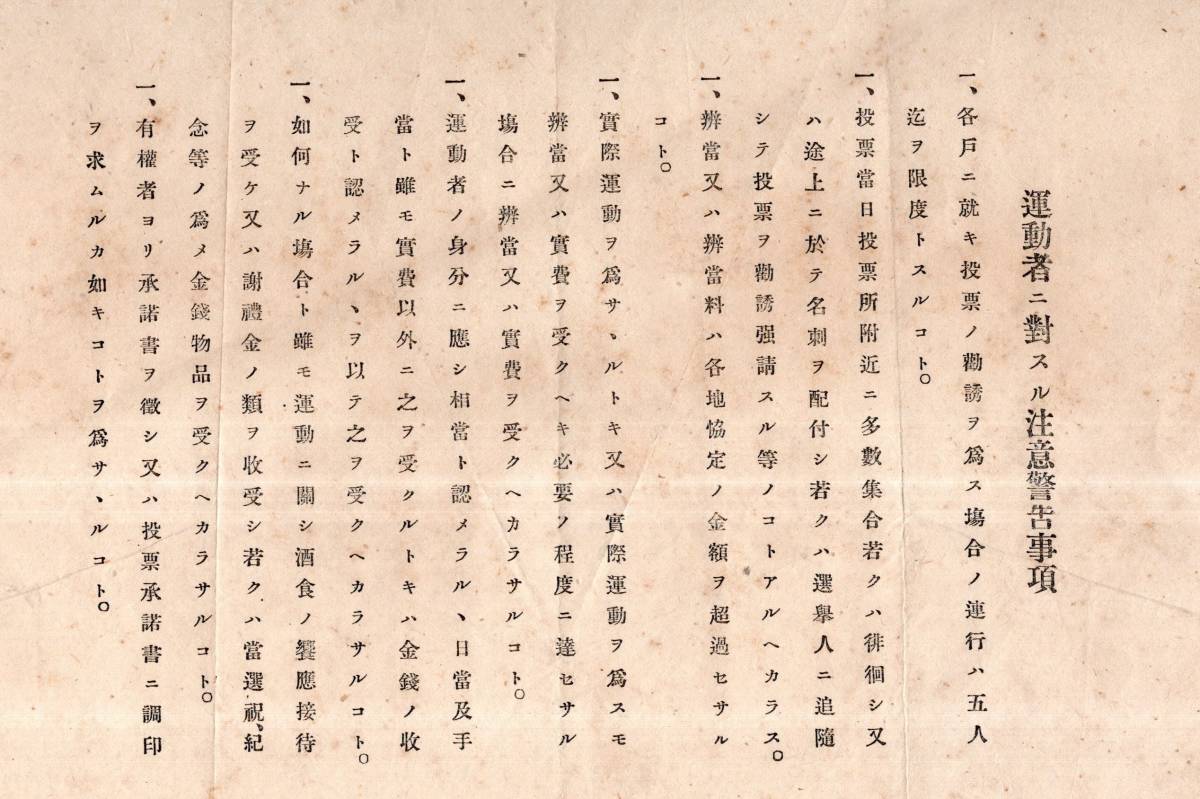 運動者ニ對スル注意警吿事項
一、各戶ニ就キ投票ノ勸誘ヲ爲ス塲合ノ連行ハ五人
迄ヲ限度トスルコト。
一、投票當日投票所附近ニ多數集合若クハ徘徊シ又
ハ途上ニ於テ名刺ヲ配付シ若クハ選擧人ニ追隨
シテ投票ヲ勸誘强請スル等ノコトアルヘカラス。
一、辨當又ハ辨當料ハ各地恊定ノ金額ヲ超過セサル
コト。
一、實際運動ヲ爲サヽルトキ又ハ實際運動ヲ爲スモ
辨當又ハ實費ヲ受クヘキ必要ノ程度ニ達セサル
塲合ニ辨當又ハ實費ヲ受クヘカラサルコト。
一、運動者ノ身分ニ應シ相當ト認メラルヽ日當及手
當ト雖モ實費以外ニ之ヲ受クルトキハ金錢ノ收
受ト認メラルヽヲ以テ之ヲ受クヘカラサルコト。
一、如何ナル塲合ト雖モ運動ニ關シ酒食ノ饗應接待
ヲ受ケ又ハ謝禮金ノ類ヲ收受シ若クハ當選祝、紀
念等ノ爲メ金錢物品ヲ受クヘカラサルコト。
一、有權者ヨリ承諾書ヲ徵シ又ハ投票承諾書ニ調印
ヲ求ムルカ如キコトヲ爲サヽルコト。